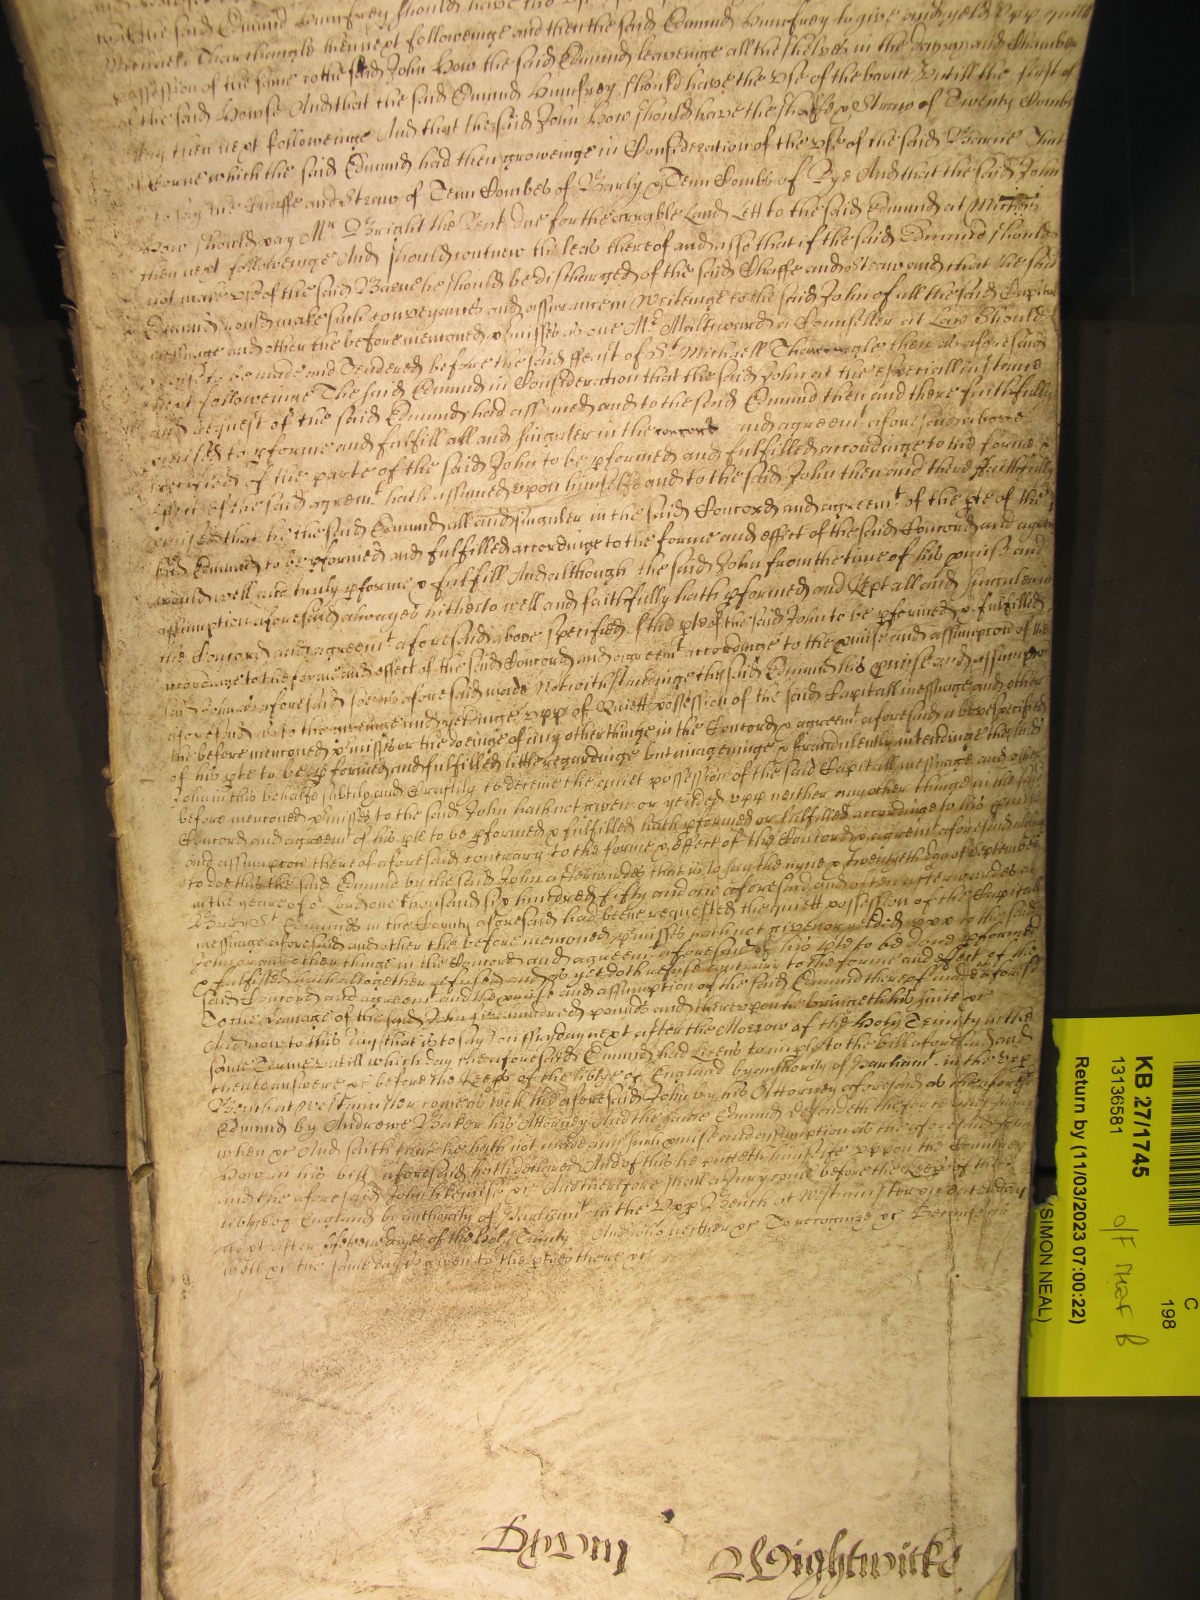 with the said Edmund Humfrey should have the
Michaell Tharchangle then next followeinge and then the said Edmund Humfrey to give and yeld upp quiett
possession of the same to the said John How the said Edmund leaveinge all the shelves in the dayry and Chamber
of the said Howse And that the said Edmund Humfrey should have the use of the barne untill the first of
May then next followeinge And that the said John How should have the chaffe & Straw of Twenty Combes
of Corne which the said Edmund had then groweinge in Consideration of the use of the said Barne That
is to say the Chaffe and Straw of Tenn Combes of Barly & Tenn Combs of Rye And that the said John
How should pay Mr Bright the Rent due for the arrable Land Lett to the said Edmund at Michas
then next followeinge And should outnew the leas thereof and also that if the said Edmund should
not make use of the said Barne he should be discharged of the said Chaffe and Straw and that the said
Edmund would make such conveyance and assurance in Writeinge to the said John of all the said Capitall
messuage and other the before menconed pmisses as one Mr Maltiward a Counseller at Law Should
be made and Tendered before the said ffeast of St Michaell Tharcangle then as aforesaid
next followeinge The said Edmund in Consideration that the said John at the especiall instance
and request of the said Edmund had assumed and to the said Edmund then and there faithfully
pmised to pforme and fulfill all and singuler in the concord and agreemt aforesaid above
specified of the parte of the said John to be pformed and fulfilled accordinge to the forme &
effect of the said agreemt hath assumed upon himselfe and to the said John then and there ffaithfully
pmised that he the said Edmund all and singuler in the said Concord and agreemt of the pte of the
said Edmund to be pformed and fulfilled accordinge to the forme and effect of the said Concord and agreemt
would well and truly pforme & fulfill And although the said John from the time of his pmise and
assumption aforesaid alwayes hitherto well and faithfully hath pformed and kept all and singuler in
the Concord and agreemt aforesaid above specified of the pte of the said John to be pformed & fulfilled
accordinge to the forme and effect of the said Concord and agreemt accordinge to the pmise and assumpcon of the
said John in aforesaid forme aforesaid made Notwithstandinge the said Edmund his pmise and assumpcon
aforesaid as to the giveinge and yeldinge upp of Quiett possession of the said Capitall messuage and other
the before menconed pmisses or the doeinge of any other thinge in the Concord & agreemt aforesaid above specified
of his pte to be pformed and fulfilled little regardinge but imagininge & fraudulently intendinge the said
John in this behalfe subtily and Craftily to deceive the quiet possession of the said Capitall messuage and other
before menconed pmisses to the said John hath not given or yeilded upp neither any other things in the said
Concord and agreemt of his pte to be pformed & fulfilled hath pformed or fulfilled accordinge to his pmise
and assumpcon thereof aforesaid contrary to the forme & effect of the Concord & agreemt aforesaid
to doe this the said Edmund by the said John afterwardes that is to say the nyne & twentyeth day of September
in the yeare of or Lord one thousand six hundred fifty and one aforesaid and often afterwardes at
Bury St Edmunds in the County aforesaid had beene requested the quiett possession of the Capitall
messuage aforesaid and other the before menconed pmisses hath not given or yelded upp to the said
John or any other thinge in the Concord and agreemt aforesaid of his pte to be done pformed
& fulfilled hath altogether refused and as yet doth refuse contrary to the forme and effect of the
said Concord and agreemt and the pmise and assumption of the said Edmund thereof in forme aforesaid
To the damage of the said John five hundred pounds and thereupon he bringeth his suite &c
And now to this day that is to say on ffryday next after the Morrow of the Holy Trinity in the
same Terme untill which day the aforesaid Edmund had licens to imple to the bill aforesaid and
then to answere &c before the Keeps of the libtye of England by authority of Parliamt in the upp
Bench at Westminster comeas well the aforesaid John by his Attorney aforesaid as the aforesd
Edmund by Andrewe Baker his Attorney And the same Edmund defendeth the force and Injury
when &c And saith that he hath not made any such pmise and assumption as the aforesaid John
How in his bill aforesaid hath declared And of this he putteth himselfe uppon the Countrey
and the aforesaid John likewise &c And therefore shall a Jury come before the Keeps of the
libtye of England by authority of Parliamt in the Upp Bench at Westminster on Saturday
next after fifteene dayes of the Holy Trinity And who neither &c To recognize &c Because as
well &c the same day is given to the ptyes there &c
Wightwicke
KB 27/1745
13136581
Return by (11/03/2023 07:00:22)
(SIMON NEAL)
C
198